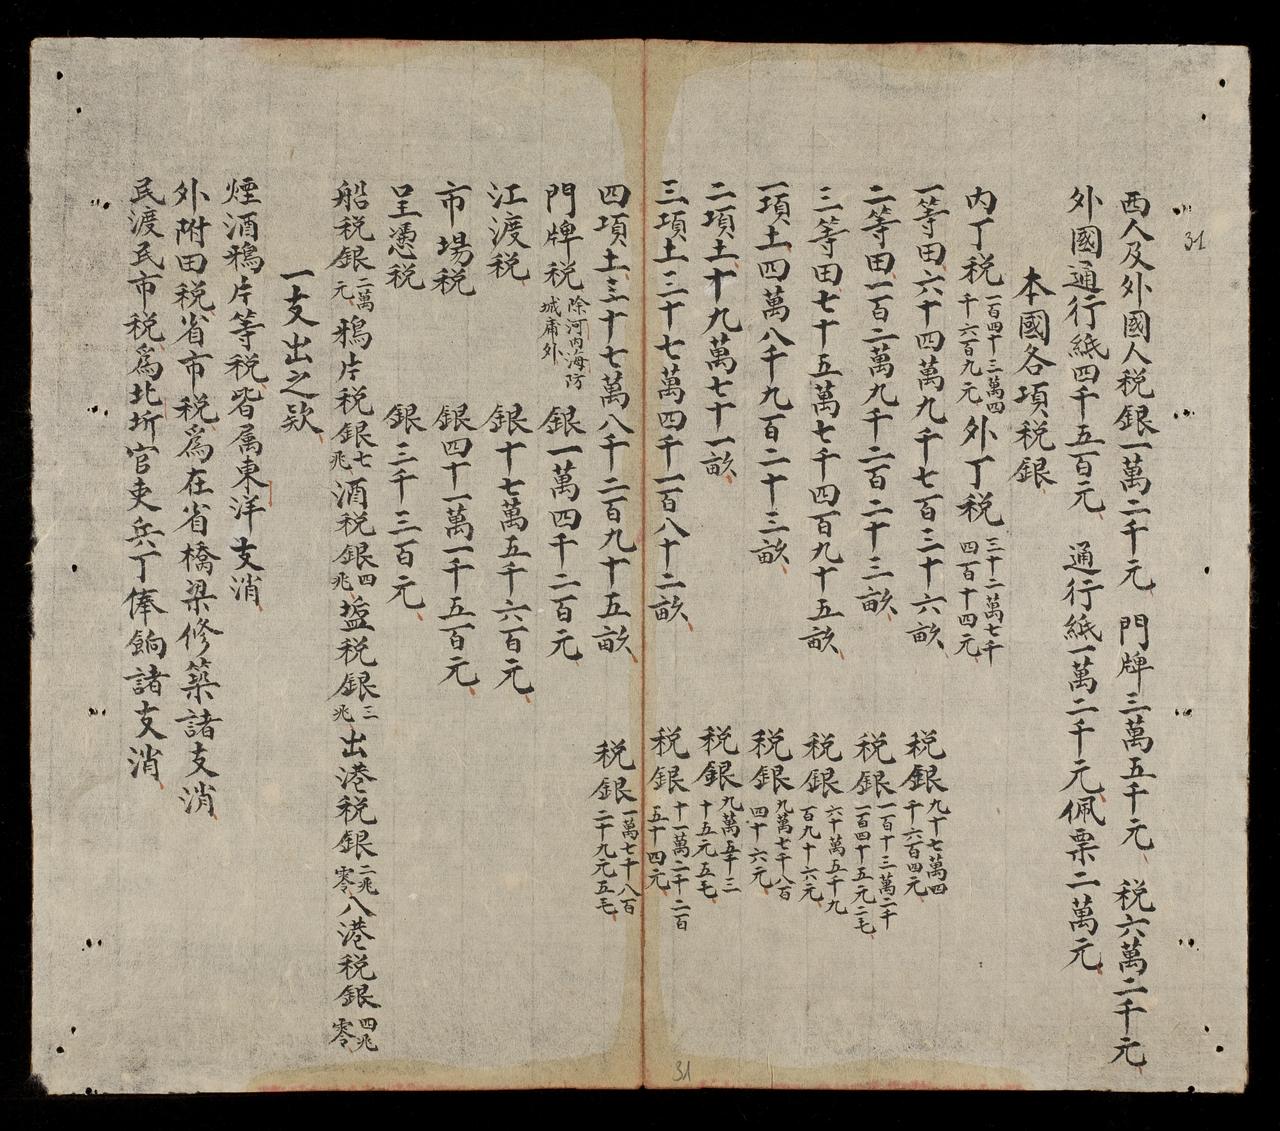 西人及外國人税銀一萬二千元 門牌三萬五千元 税六萬二千元
外國通行紙四千五百元 通行紙一萬二千元佩票二萬元
本國各項税銀
内丁税一百四十三萬四千六百九元外丁税三十二萬七千四百十四元
一等田六十四萬九千七百三十六畝 税銀九十七萬四千六百四元
二等田一百二萬九千二百二十三畝 税銀一百十三萬二千一百四十五元二毛
三等田七十五萬七千四百九十五畝 税銀六十萬五千九百九十六元
一項土四萬八千九百二十三畝 税銀九萬七千八百四十六元
二項土十九萬七十一畝 税銀九萬五千三十五元五毛
三項土三十七萬四千一百八十二畝 税銀十一萬二千二百五十四元
四項土三十七萬八千二百九十五畝 税銀一萬七千八百二十九元五毛
門牌税除河内海防城庯外 銀一萬四千二百元
江渡税 銀十七萬五千六百元
市場税 銀四十一萬一千五百元
呈憑税 銀三千三百元
船税銀二萬元鴉片税銀七兆酒税銀四兆塩税銀三兆出港税銀二兆零八港税銀四兆零
一支出之欵
煙酒鴉片等税皆属東洋支消
外附田税省市税爲在省橋梁修築諸支消
民渡民市税爲北圻官吏兵丁俸餉諸支消
31
31